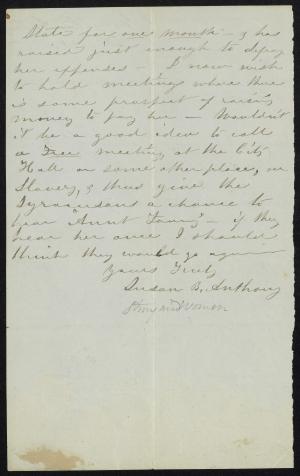 State for one month - & has
raised just enough to defray
her expenses - I now wish
to hold meetings where there
is some prospect of raising
money to pay her - Wouldn't
it be a good idea to call
a Free meeting at the City
Hall or some other place, on
Slavery, & thus give the
Syracusans a chance to
hear "Aunt Fanny" - if they
hear her once I should
think they would go again
Yours Truly
Susan B. Anthony